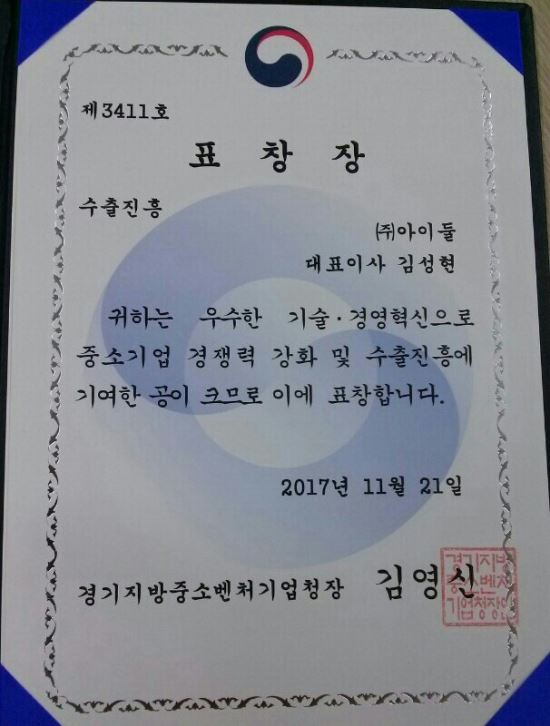 제3411호
표 창 장
수출진흥
㈜아이둘
대표이사 김성현
귀하는 우수한 기술·경영혁신으로
중소기업 경쟁력 강화 및 수출진흥에
기여한 공이 크므로 이에 표창합니다.
2017년 11월 21일
경기지방중소벤처기업청장 김영신
경기지방
중소벤처
기업청장인